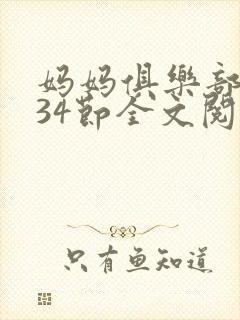 妈妈俱樂部
34節全文閱
只有鱼知道